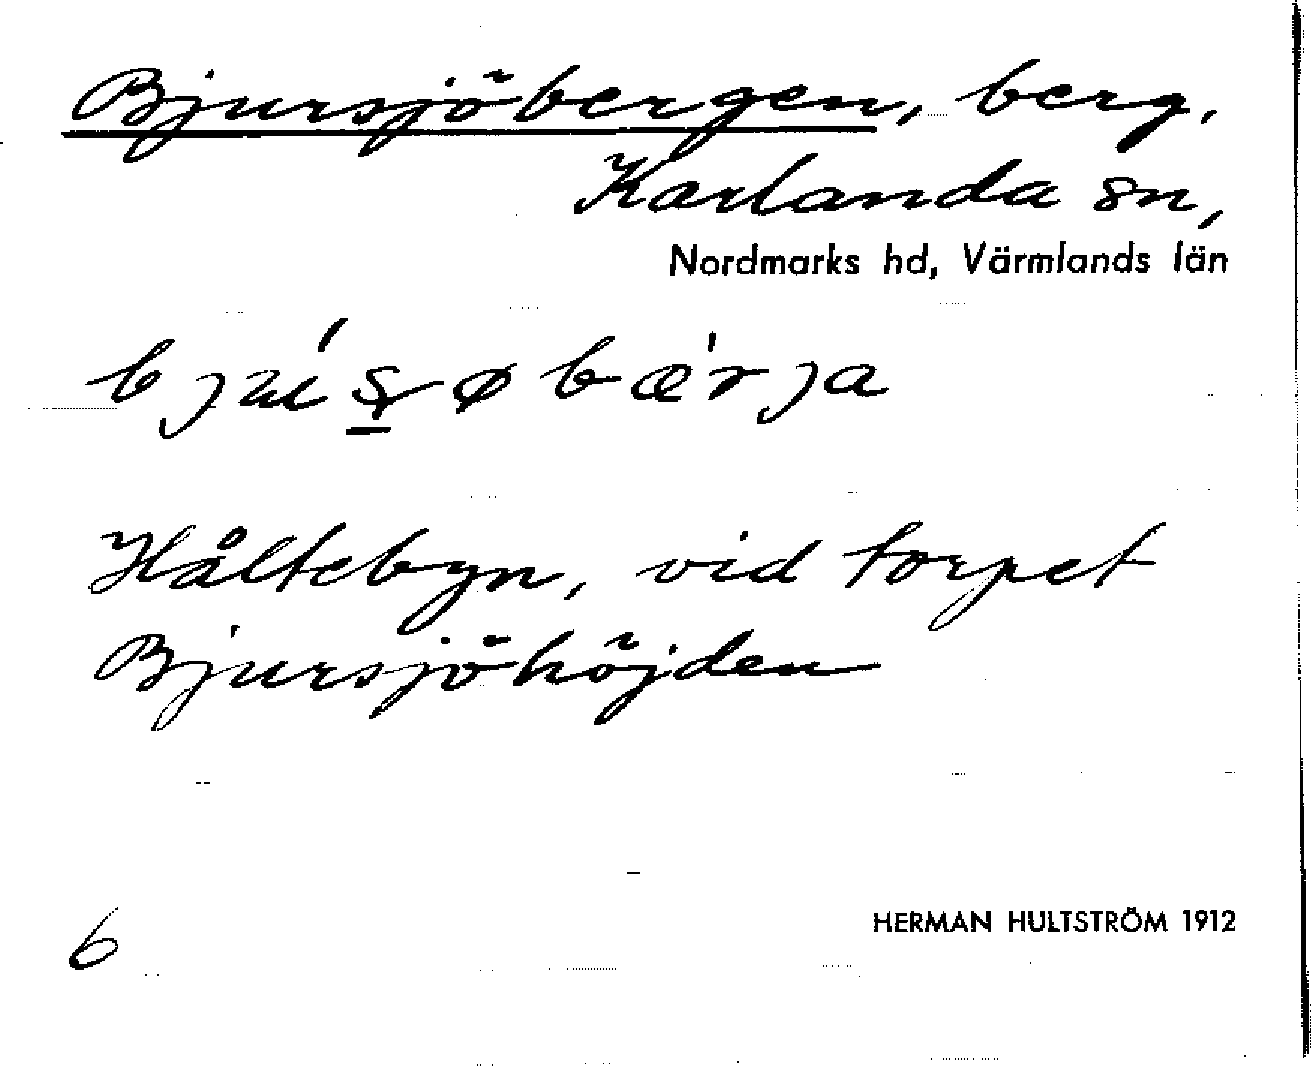 Bjursjöbergen, berg,
Karlanda sn,
Nordmarks hd, Värmlands län
bjuʹʂøbæ'rja
Håltebyn, vid torpet
Bjursjöhöjden
6
HERMAN HULTSTRÖM 1912